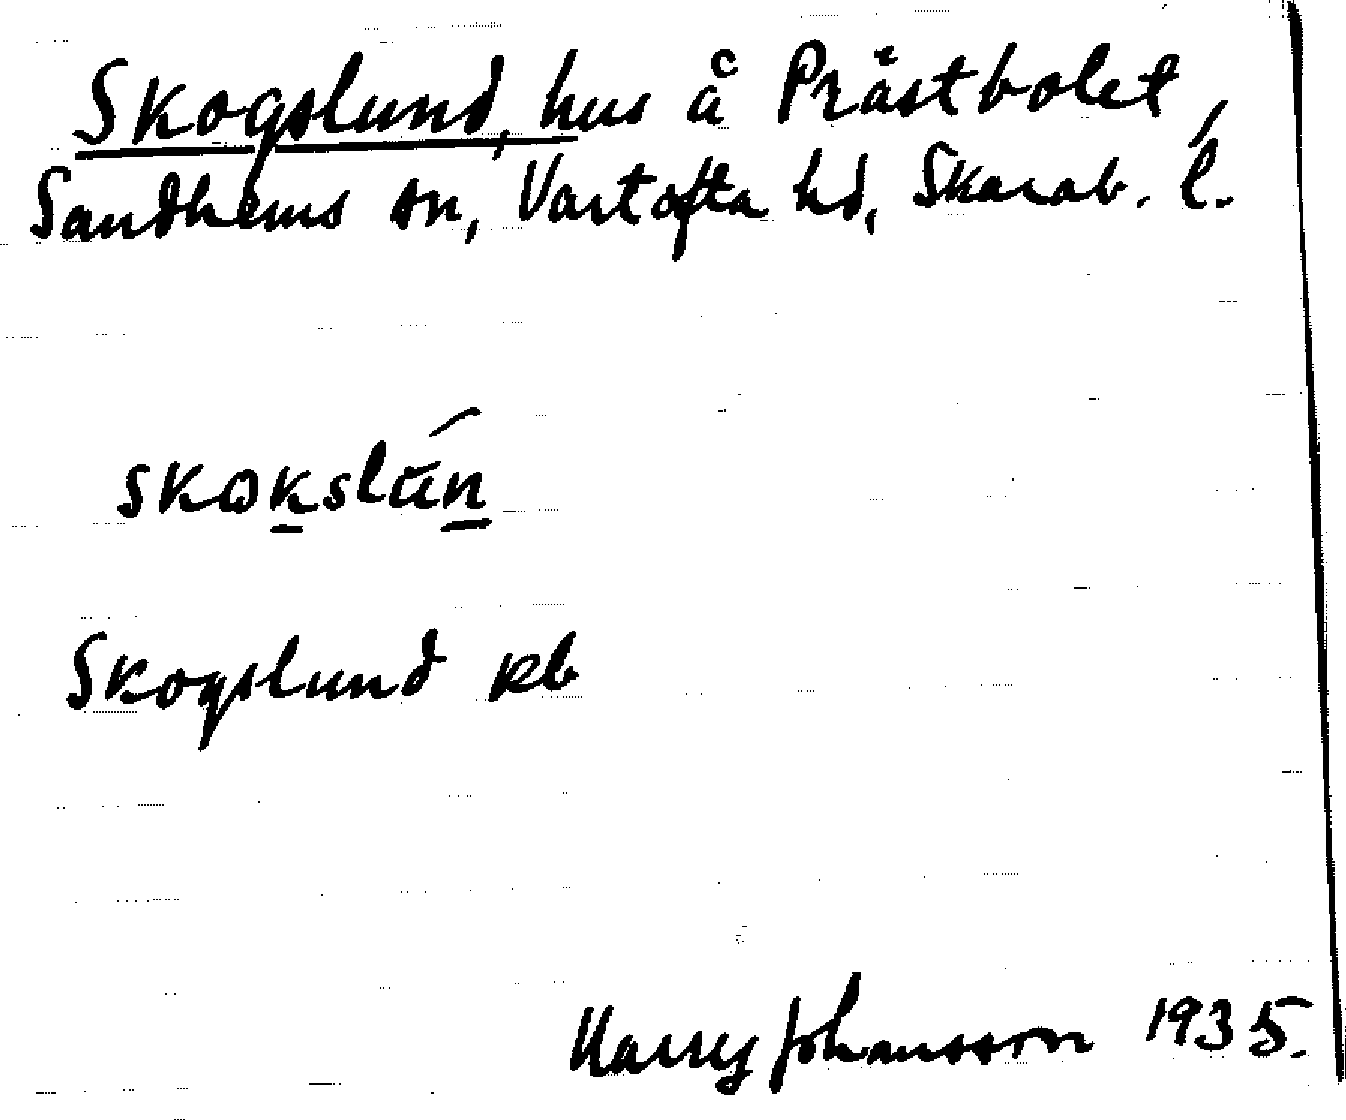 Skogslund, hus å Prästbolet,
Sandhems sn, Vartofta hd, Skarab. l.
Skogslund kb
Harry Johansson 1935.